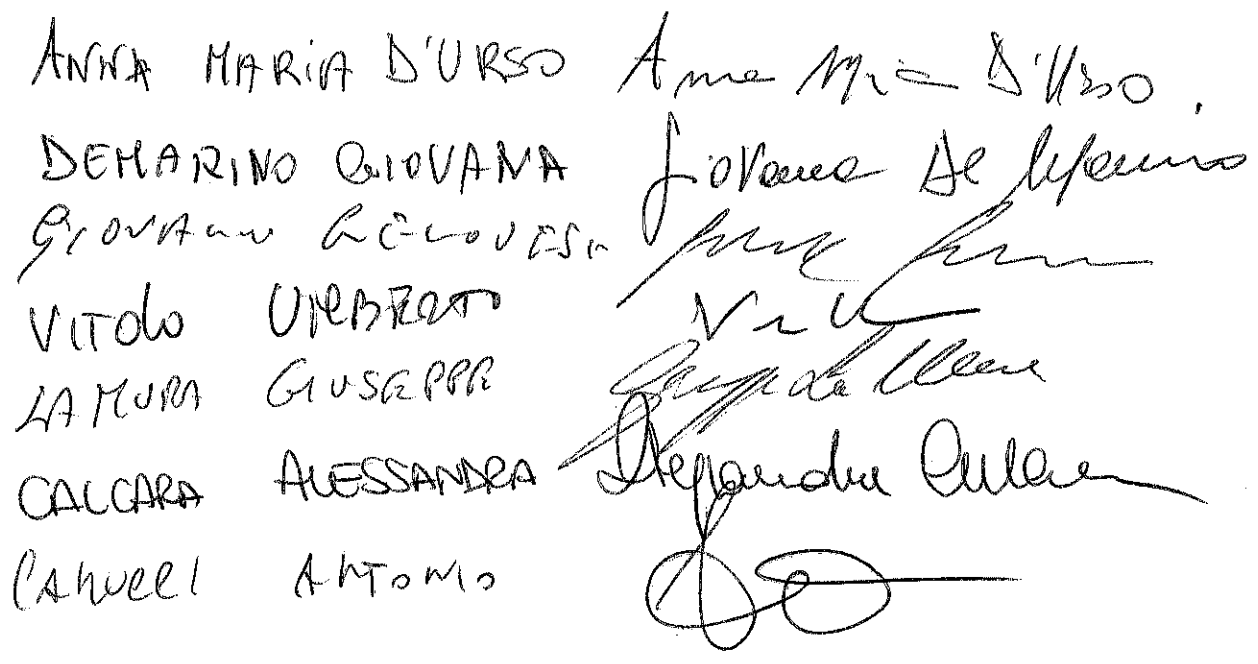 ANNA MARIA D'URSO Anna Maria D'Urso.
DEMARINO GIOVANA Giovana De Marino
GIOVANNI GENOVESI
VITOLO UMBERTO
LA MURA GIUSEPPE Giuseppe La Mura
CALCARA ALESSANDRA Alessandra Calcara
ANTONIO